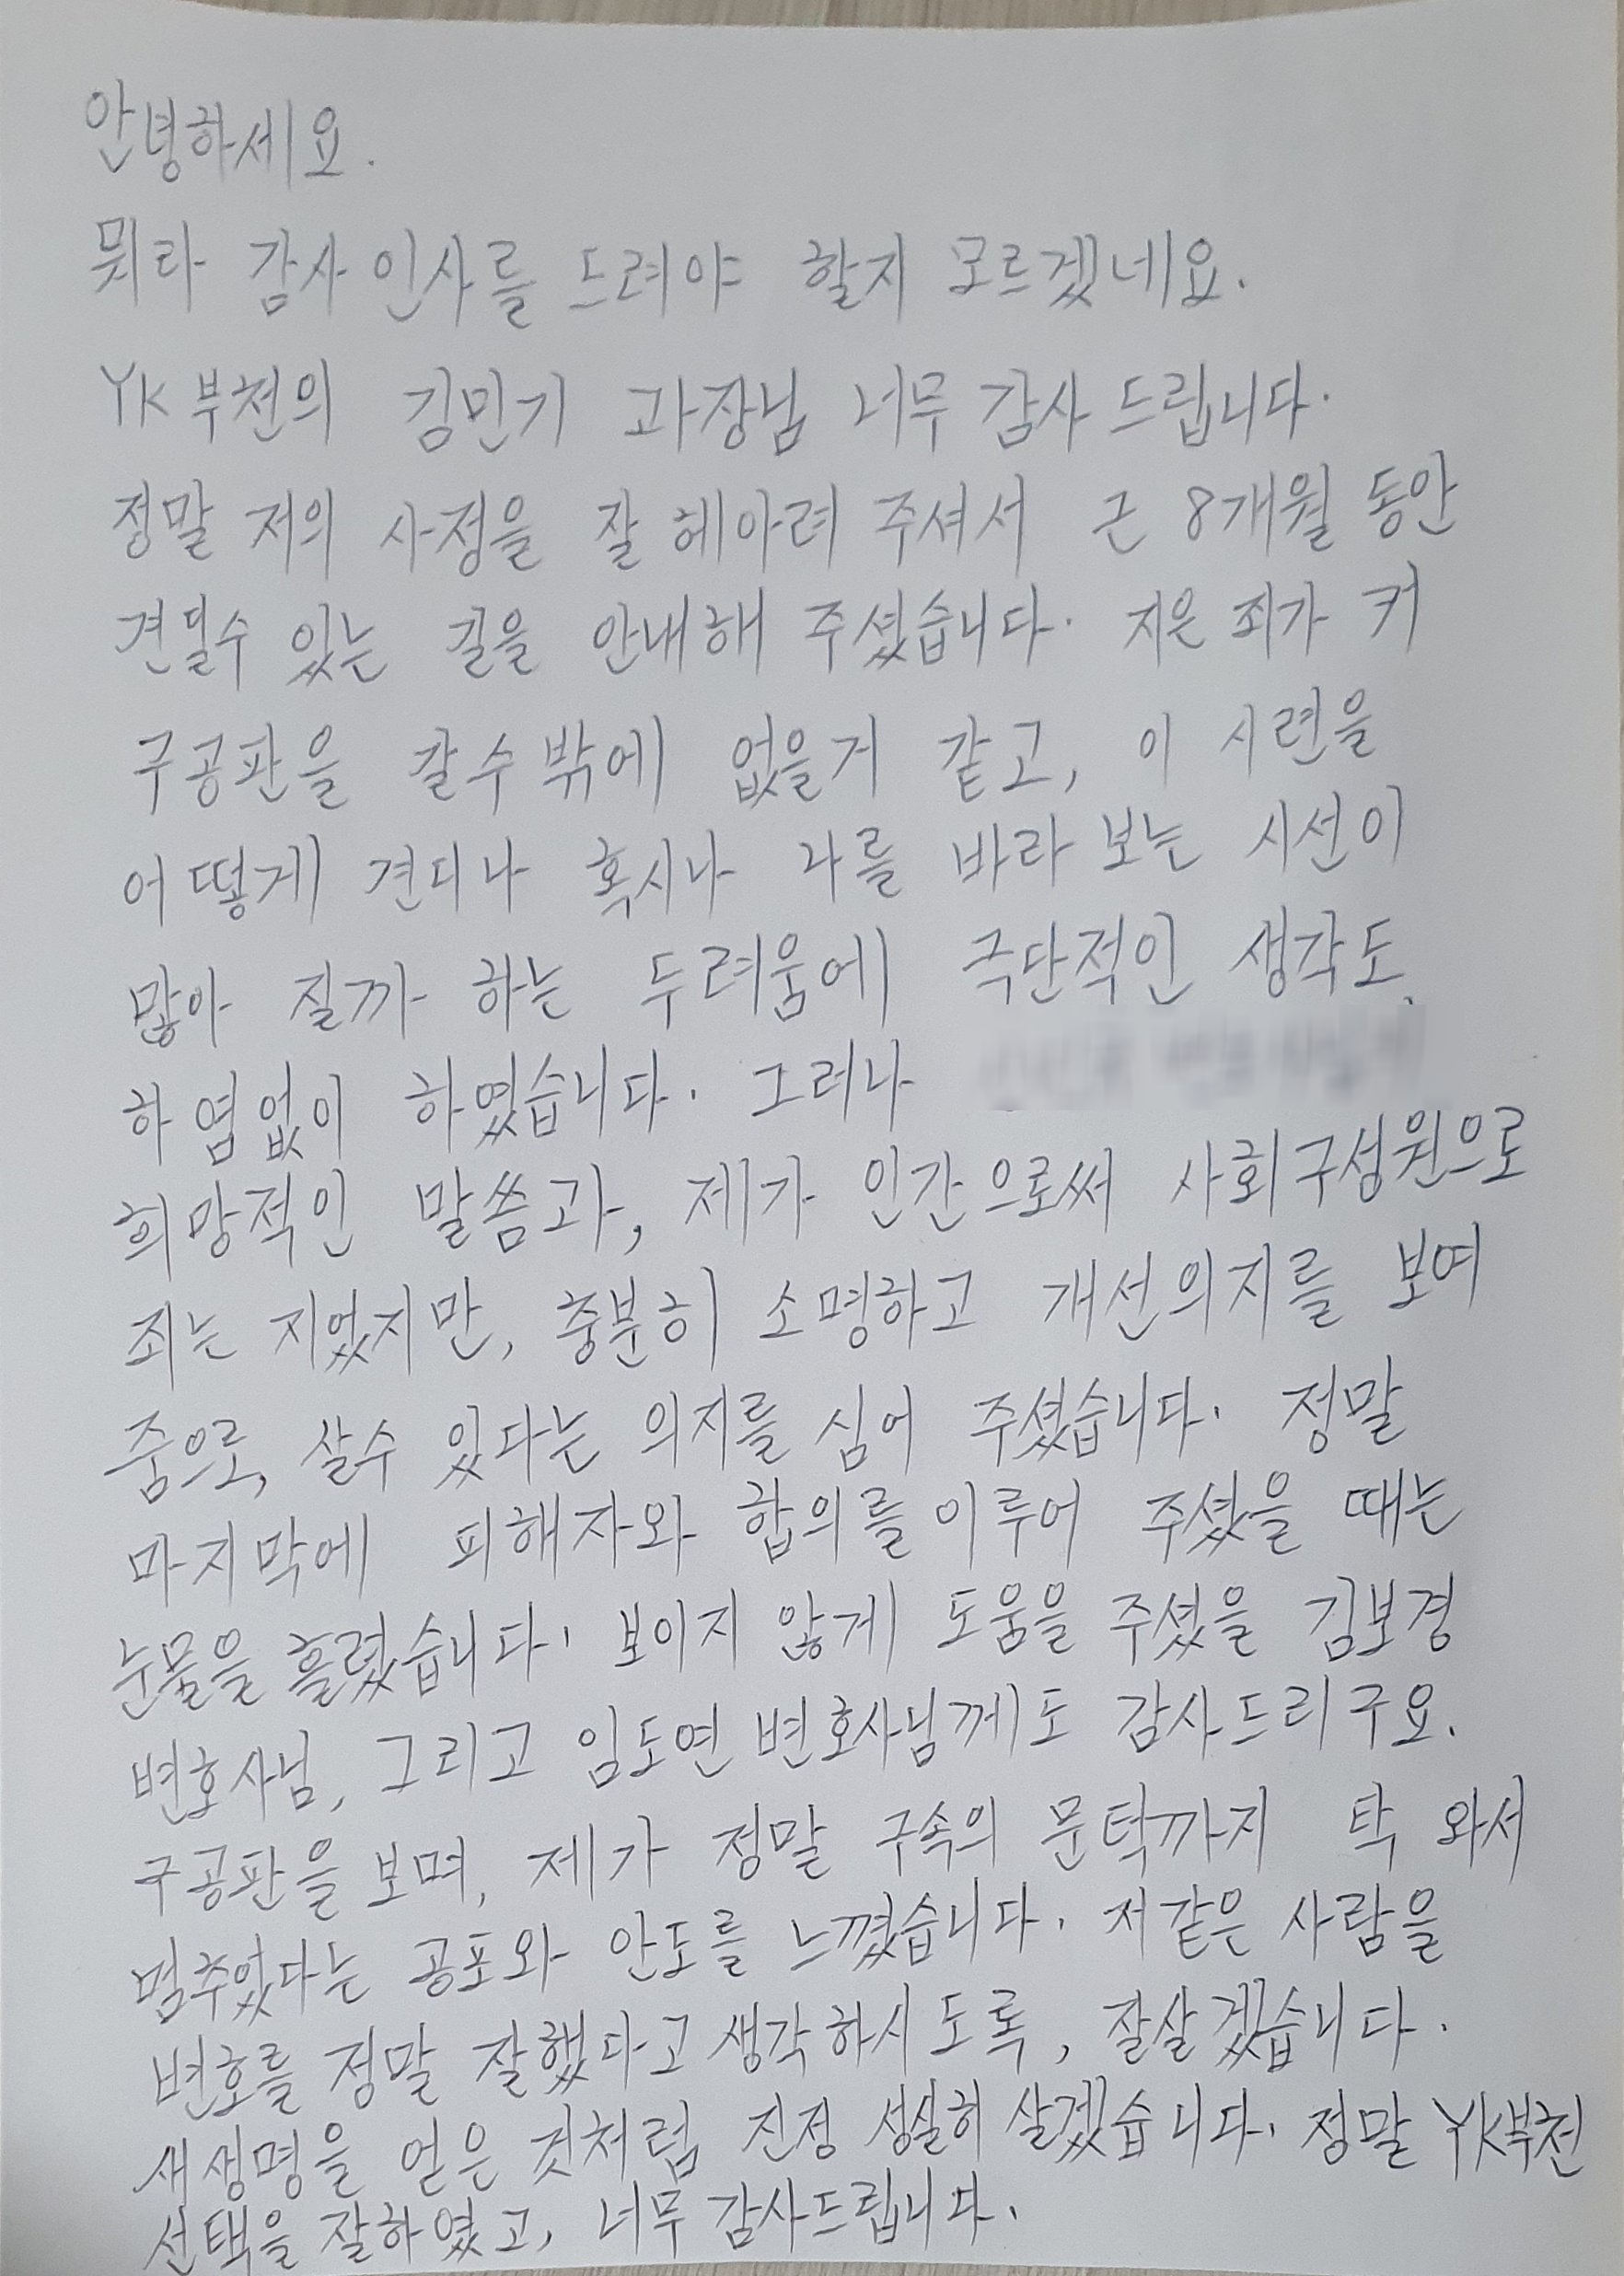 안녕하세요.
뭐라 감사 인사를 드려야 할지 모르겠네요.
YK 부천의 김민기 과장님 너무 감사 드립니다.
정말 저의 사정을 잘 헤아려 주셔서 근 8개월 동안
견딜수 있는 길을 안내해 주셨습니다. 지은 죄가 커
구공판을 갈수 밖에 없을거 같고, 이 시련을
어떻게 견디나 혹시나 나를 바라 보는 시선이
많아 질까 하는 두려움에 극단적인 생각도
하염없이 하였습니다. 그러나
희망적인 말씀과, 제가 인간으로써 사회구성원으로
죄는 지었지만, 충분히 소명하고 개선의지를 보여
줌으로, 살수 있다는 의지를 심어 주셨습니다. 정말
마지막에 피해자와 합의를 이루어 주셨을 때는
눈물을 흘렸습니다. 보이지 않게 도움을 주셨을 김보경
변호사님, 그리고 임도연 변호사님께도 감사드리구요.
구공판을 보며, 제가 정말 구속의 문턱까지 탁 와서
멈추었다는 공포와 안도를 느꼈습니다. 저같은 사람을
변호를 정말 잘했다고 생각하시도록, 잘살겠습니다.
새생명을 얻은 것처럼 진정 성실히 살겠습니다. 정말 YK부천
선택을 잘하였고, 너무 감사드립니다.